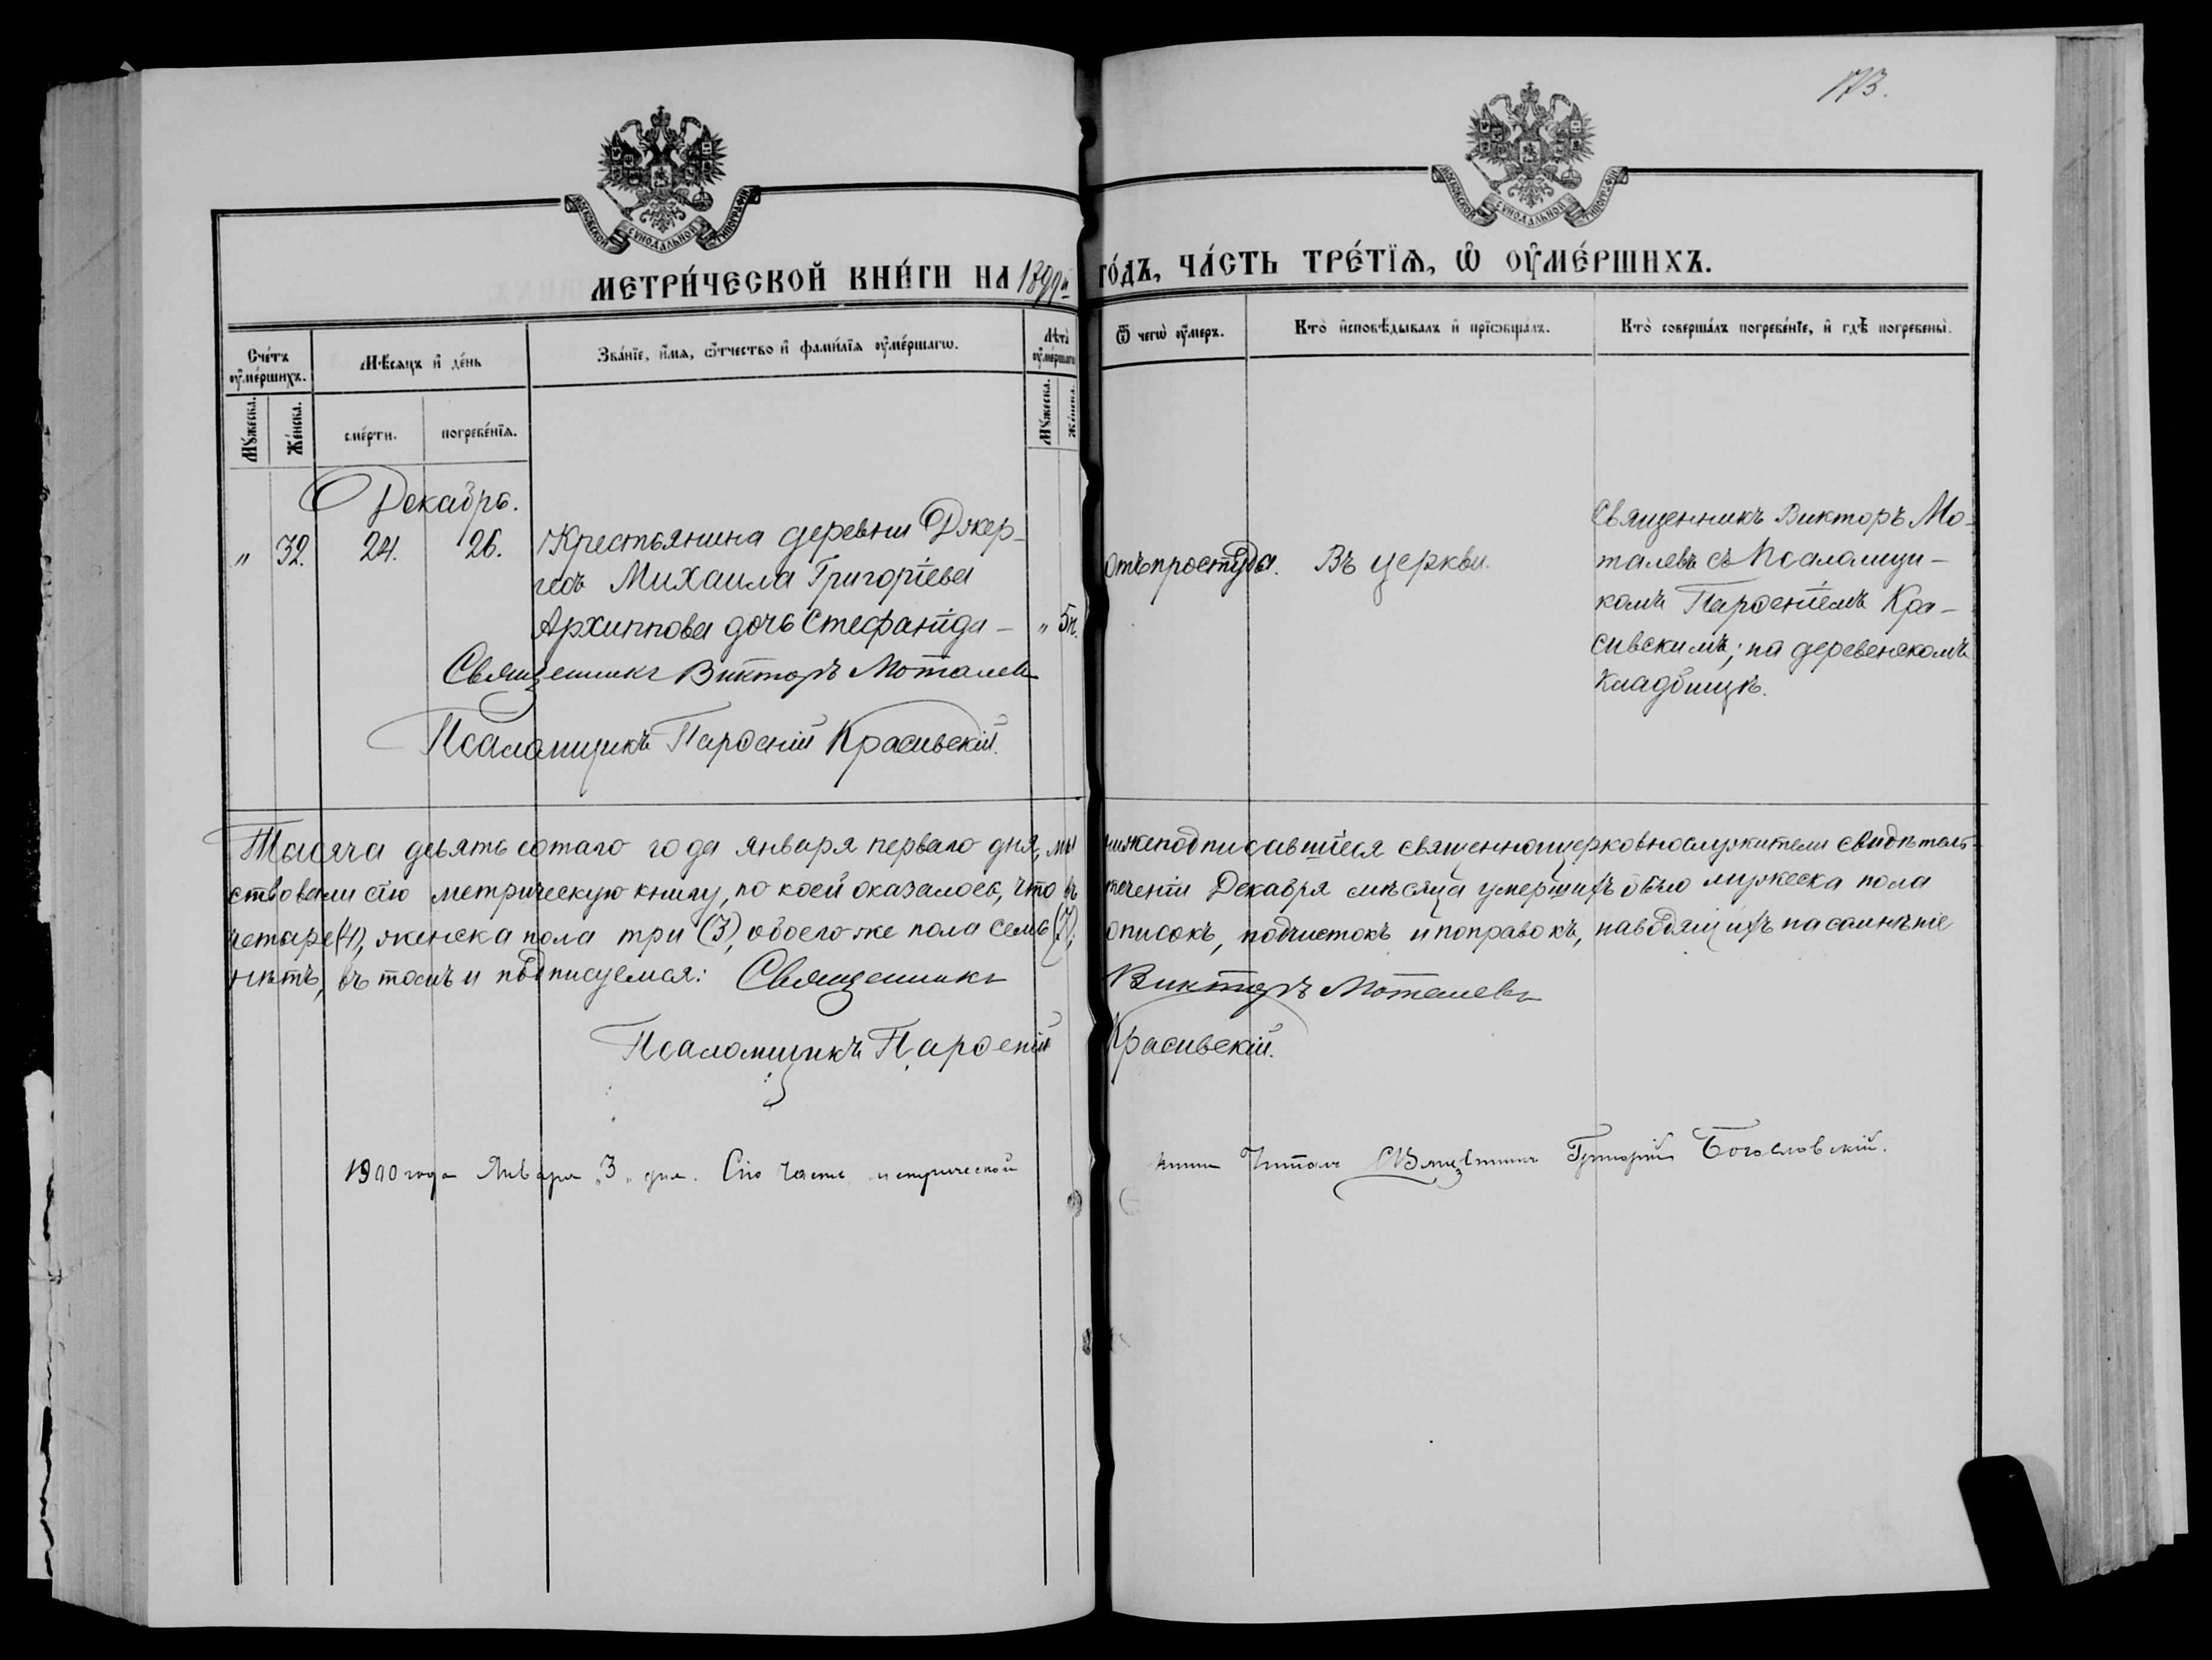 173.
МОСКОВСКОЙ СУНОДАЛЬНОЙ ТИПОГРАФІИ
МОСКОВСКОЙ СУНОДАЛЬНОЙ ТИПОГРАФІИ
МЕТРИ́ЧЕСКОЙ КНИ́ГИ НА 1899й ГО́ДЪ, ЧА́СТЬ ТРЕ́ТЇѦ, Ѿ ОУМЕ́РШИХЪ.
Сче́тъ оуме́ршихъ.
Мѣ́сяцъ и де́нь
Зва́нїе, и́мѧ, ѻ́тчество и фами́лїѧ оуме́ршагѡ.
Лѣта̀ оуме́ршагѡ
Ѿ чегѡ̀ оу́меръ.
Кто̀ и́сповѣ́дывалъ и прїѡбща́лъ.
Кто̀ соверша́лъ погребе́нїе, и гдѣ̀ погребены̀.
Мꙋ́жеска.
Же́нска.
сме́рти.
погребе́нїѧ.
Мꙋ́жеска.
Же́нска.
Декабрь.
" 32. 24. 26. Крестьянина деревни Джер-
гедъ Михаила Григоріева
Архиппова дочь Стефанида - " 5н.
Отъ простуды. Въ церкви.
Священникъ Викторъ Мо-
талевъ съ Псаломщи-
комъ Парѳеніемъ Кра-
сивскимъ; на деревенскомъ
кладбищѣ.
Священникъ Викторъ Моталевъ
Псаломщикъ Парѳеній Красивскій.
Тысяча девять сотаго года января перваго дня, мы нижеподписавшіеся священноцерковнослужители свидѣтель-
ствовали сію метрическую книгу, по коей оказалось, что въ теченіи Декабря мѣсяца умершихъ было мужеска пола
четыре (4), женска пола три (3), обоего же пола семь (7); описокъ, подчистокъ и поправокъ, наводящихъ на сомнѣніе
нѣтъ, въ томъ и подписуемся: Священникъ Викторъ Моталевъ
Псаломщикъ Парѳеній Красивскій.
1900 года Января „3„ дня. Сію часть метрической книги читалъ Священникъ Григорій Богословскій.